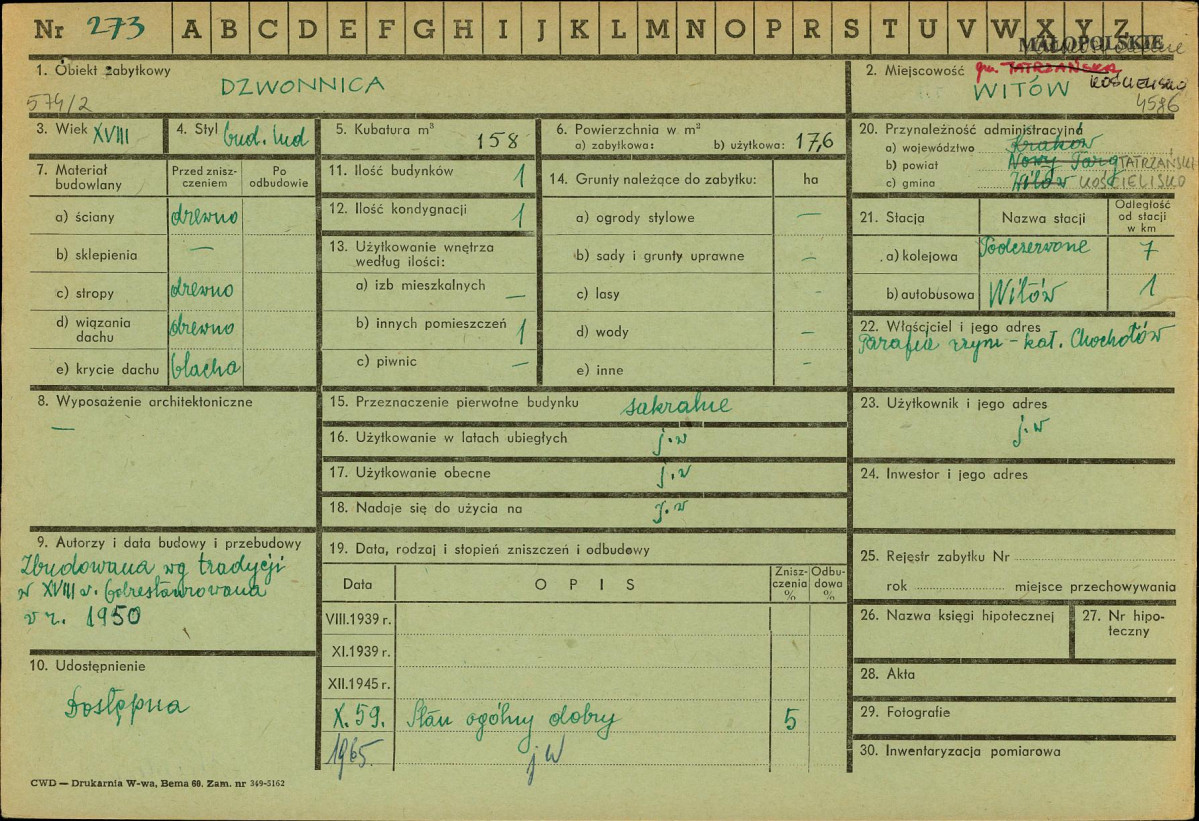 Nr 273 A B C D E F G H I J K L M N O P R S T U V W X Y Z
MAŁOPOLSKIE
1. Obiekt zabytkowy
DZWONNICA
574/2
2. Miejscowość gm. TATRZAŃSKA KOŚCIELISKO
WITÓW
4586
3. Wiek XVIII
4. Styl bud. lud
5. Kubatura m³
158
6. Powierzchnia w m²
a) zabytkowa: b) użytkowa: 17,6
20. Przynależność administracyjna
a) województwo Kraków
b) powiat Nowy Targ TATRZAŃSKI
c) gmina Witów KOŚCIELISKO
7. Materiał budowlany
Przed zniszczeniem
Po odbudowie
a) ściany drewno
b) sklepienia —
c) stropy drewno
d) wiązania dachu drewno
e) krycie dachu blacha
11. Ilość budynków 1
12. Ilość kondygnacji 1
13. Użytkowanie wnętrza
według ilości:
a) izb mieszkalnych —
b) innych pomieszczeń 1
c) piwnic —
14. Grunty należące do zabytku: ha
a) ogrody stylowe —
b) sady i grunty uprawne —
c) lasy —
d) wody —
e) inne —
21. Stacja
Nazwa stacji
Odległość
od stacji
w km
a) kolejowa Podczerwone 7
b) autobusowa Witów 1
22. Właściciel i jego adres
Parafia rzym-kat. Chochołów
8. Wyposażenie architektoniczne
—
15. Przeznaczenie pierwotne budynku sakralne
16. Użytkowanie w latach ubiegłych j.w
17. Użytkowanie obecne j.w
18. Nadaje się do użycia na j.w
23. Użytkownik i jego adres
j.w
24. Inwestor i jego adres
9. Autorzy i data budowy i przebudowy
Zbudowana wg tradycji
w XVIII w. Odrestaurowana
w r. 1950
10. Udostępnienie
Dostępna
19. Data, rodzaj i stopień zniszczeń i odbudowy
Data
OPIS
Zniszczenia
%
Odbudowa
%
VIII.1939 r.
XI.1939 r.
XII.1945 r.
X.59. Stan ogólny dobry 5
1965. jw
25. Rejestr zabytku Nr
rok miejsce przechowywania
26. Nazwa księgi hipotecznej
27. Nr hipoteczny
28. Akta
29. Fotografie
30. Inwentaryzacja pomiarowa
CWD — Drukarnia W-wa, Bema 60. Zam. nr 349-5162